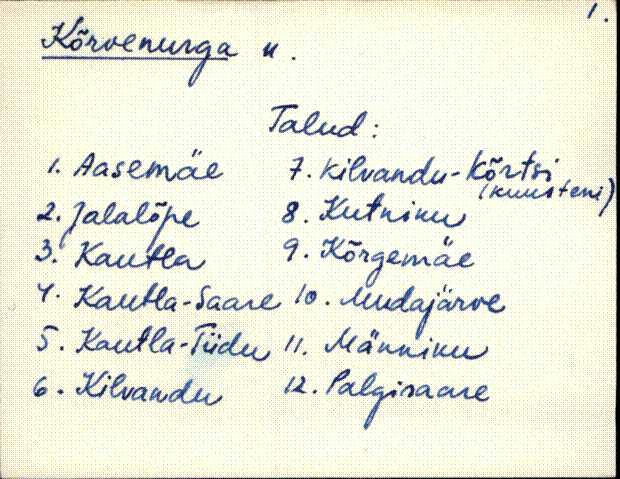 1.
Kõrvenurga k.
Talud:
1. Aasemäe
2. Jalalõpe
3. Kautla
4. Kautla-Saare
5. Kautla-Tiidu
6. Kilvandu
7. Kilvandu-Kõrtsi
(Kuusteni)
8. Kutniku
9. Kõrgemäe
10. Mudajärve
11. Männiku
12. Palgisaare